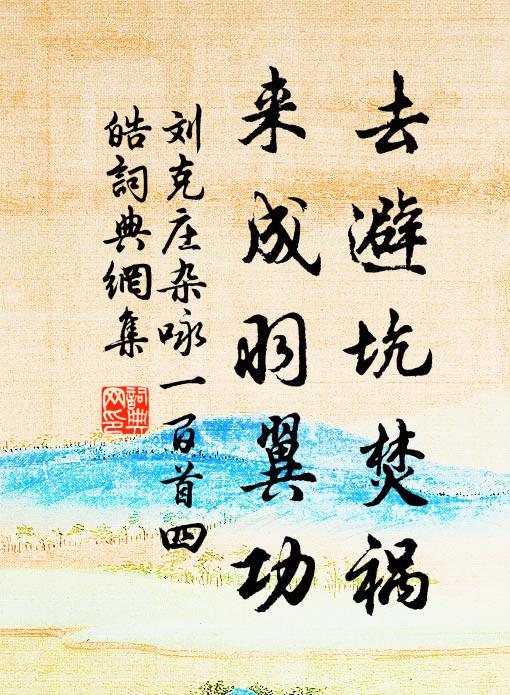 去避坑焚祸
来成羽翼功
刘克庄杂咏一百首四
皓詞典網集
詞典網印